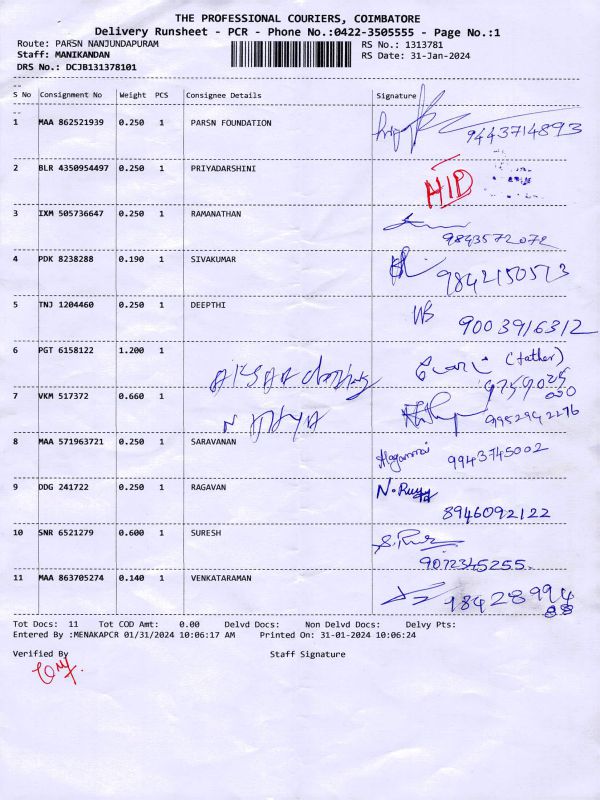 THE PROFESSIONAL COURIERS, COIMBATORE
Delivery Runsheet - PCR - Phone No.:0422-3505555 - Page No.:1
Route: PARSN NANJUNDAPURAM RS No.: 1313781
Staff: MANIKANDAN RS Date: 31-Jan-2024
DRS No.: DCJB131378101
S No Consignment No Weight PCS Consignee Details Signature
1 MAA 862521939 0.250 1 PARSN FOUNDATION 9443714893
2 BLR 4350954497 0.250 1 PRIYADARSHINI
3 IXM 505736647 0.250 1 RAMANATHAN 9843572072
4 PDK 8238288 0.190 1 SIVAKUMAR 9842150513
5 TNJ 1204460 0.250 1 DEEPTHI 9003916312
6 PGT 6158122 1.200 1 (father)
7 VKM 517372 0.660 1 9952942276
8 MAA 571963721 0.250 1 SARAVANAN 9943745002
9 DDG 241722 0.250 1 RAGAVAN 8946092122
10 SNR 6521279 0.600 1 SURESH 9072345255.
11 MAA 863705274 0.140 1 VENKATARAMAN
Tot Docs: 11 Tot COD Amt: 0.00 Delvd Docs: Non Delvd Docs: Delvy Pts:
Entered By :MENAKAPCR 01/31/2024 10:06:17 AM Printed On: 31-01-2024 10:06:24
Verified By Staff Signature